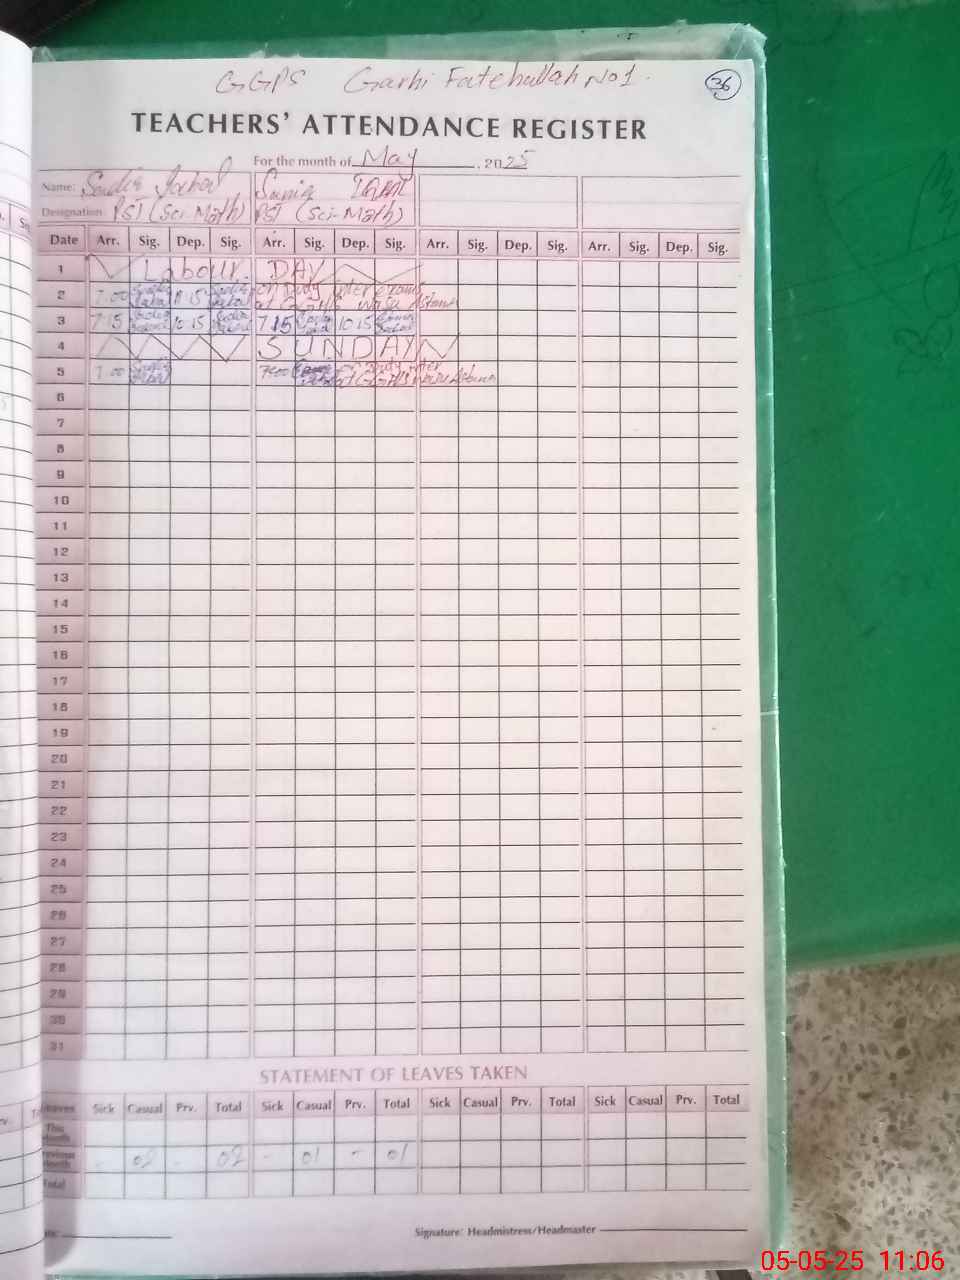 GGPS Garhi Fatehullah No 1.
36
TEACHERS' ATTENDANCE REGISTER
For the month of May, 2025
Name: Sadia Iqbal Sania
Designation: PST (Sci-Math) PST (Sci-Math)
Date Arr. Sig. Dep. Sig. Arr. Sig. Dep. Sig. Arr. Sig. Dep. Sig. Arr. Sig. Dep. Sig.
1 Labour DAY
2 7:00 Sadia Iqbal 11:15 Sadia Iqbal on Duty inter exams
at GGHS
3 7:15 10:15 7:15 10:15
4 SUNDAY
5 7:00 7:00 Duty inter
at GGHS
6
7
8
9
10
11
12
13
14
15
16
17
18
19
20
21
22
23
24
25
26
27
28
29
30
31
STATEMENT OF LEAVES TAKEN
Leaves Sick Casual Prv. Total Sick Casual Prv. Total Sick Casual Prv. Total Sick Casual Prv. Total
This Month
Previous Month - 02 - 02 - 01 - 01
Total
Signature: Headmistress/Headmaster
05-05-25 11:06